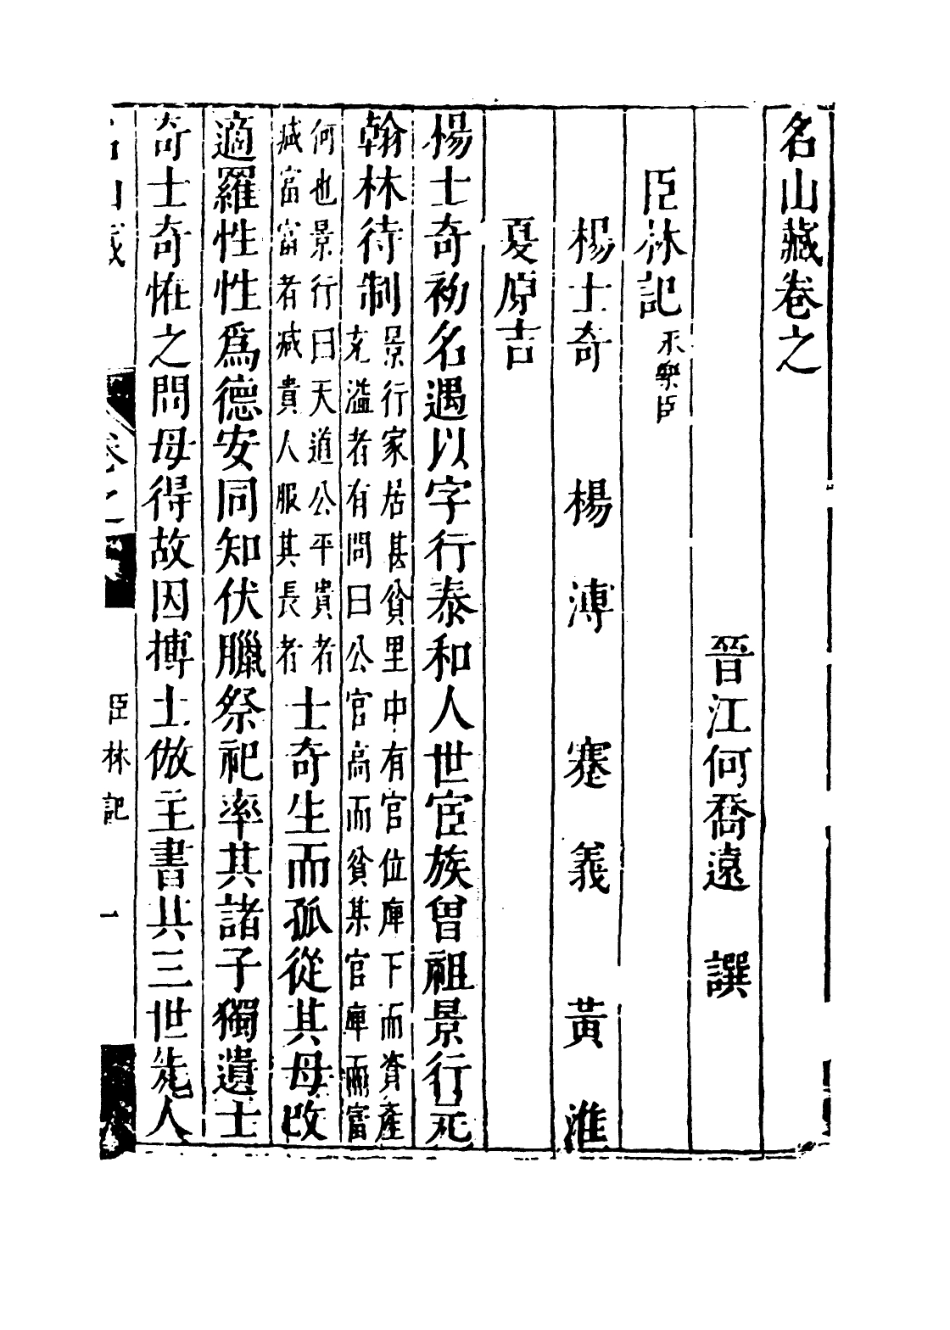 名山藏卷之
晉江何喬遠 譔
臣林記 永樂臣
楊士奇 楊溥 蹇義 黃淮
夏原吉
楊士奇初名遇以字行泰和人世宦族曾祖景行元
翰林待制 景行家居甚貧里中有官位庳下而資產
充溢者有問曰公官高而貧某官庳而富
何也景行曰天道公平貴者
减富富者减貴人服其長者
士奇生而孤從其母改
適羅性性爲德安同知伏臘祭祀率其諸子獨遺士
奇士奇恠之問母得故因摶土倣主書其三世先人
名山藏
卷之
臣林記
一